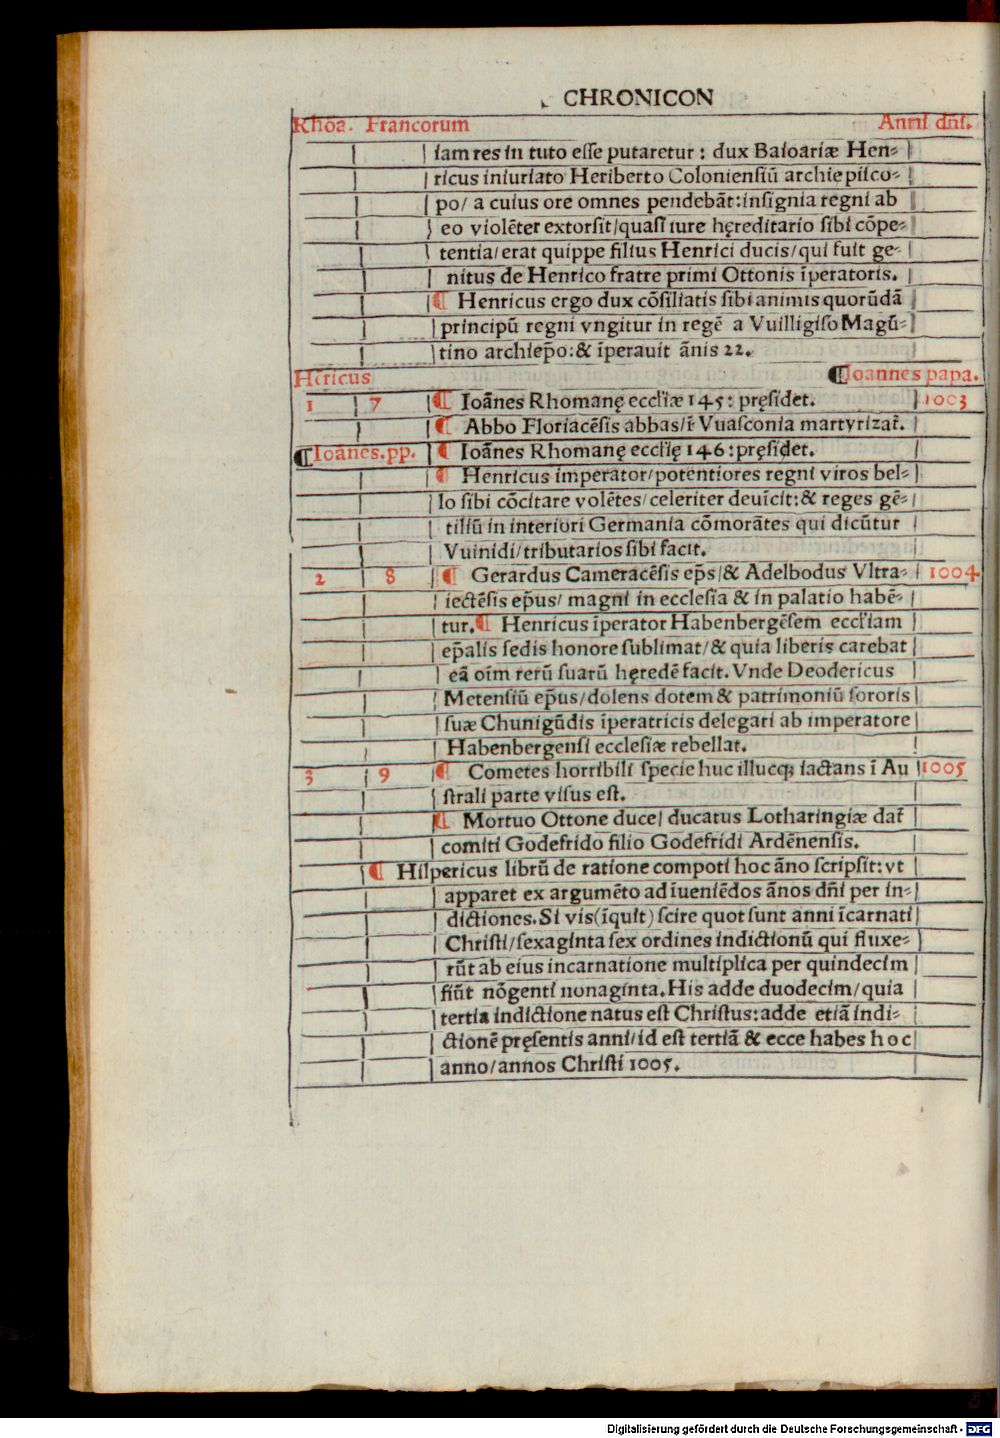 CHRONICON
Rhõa. Francorum Anni dñi.
iam res in tuto esse putaretur : dux Baioariæ Hen-
ricus iniuriato Heriberto Coloniensiũ archiepisco-
po/ a cuius ore omnes pendebãt: insignia regni ab
eo violẽter extorsit/ quasi iure hęreditario sibi cõpe-
tentia/ erat quippe filius Henrici ducis/ qui fuit ge-
nitus de Henrico fratre primi Ottonis ĩperatoris.
¶ Henricus ergo dux cõsiliatis sibi animis quorũdã
principũ regni vngitur in regẽ a Vuilligiso Magũ-
tino archiep̃o: & ĩperauit ãnis 22.
Hẽricus ¶Ioannes papa.
1 7 ¶ Ioãnes Rhomanę eccl̃iæ 145: pręsidet. 1003
¶ Abbo Floriacẽsis abbas/ ĩ Vuasconia martyrizat̃.
¶Ioãnes.pp. ¶ Ioãnes Rhomanę eccl̃ię 146: pręsidet.
¶ Henricus imperator/ potentiores regni viros bel-
lo sibi cõcitare volẽtes/ celeriter deuĩcit: & reges gẽ-
tiliũ in interiori Germania cõmorãtes qui dicũtur
Vuinidi/ tributarios sibi facit.
2 8 ¶ Gerardus Cameracẽsis ep̃s/ & Adelbodus Vltra- 1004
iectẽsis ep̃us/ magni in ecclesia & in palatio habẽ-
tur. ¶ Henricus ĩperator Habenbergẽsem eccl̃iam
ep̃alis sedis honore sublimat/ & quia liberis carebat
eã oĩm rerũ suarũ hęredẽ facit. Vnde Deodericus
Metensiũ ep̃us/ dolens dotem & patrimoniũ sororis
suæ Chunigũdis ĩperatricis delegari ab imperatore
Habenbergensi ecclesiæ rebellat.
3 9 ¶ Cometes horribili specie huc illucq; iactans ĩ Au 1005
strali parte visus est.
¶ Mortuo Ottone duce/ ducatus Lotharingiæ dat̃
comiti Godefrido filio Godefridi Ardẽnensis.
¶ Hilpericus librũ de ratione compoti hoc ãno scripsit: vt
apparet ex argumẽto ad ĩueniẽdos ãnos dñi per in-
dictiones. Si vis (ĩquit) scire quot sunt anni ĩcarnati
Christi/ sexaginta sex ordines indictionũ qui fluxe-
rũt ab eius incarnatione multiplica per quindecim
fiũt nõgenti nonaginta. His adde duodecim/ quia
tertia indictione natus est Christus: adde etiã indi-
ctionẽ pręsentis anni/ id est tertiã & ecce habes hoc
anno/ annos Christi 1005.
Digitalisierung gefördert durch die Deutsche Forschungsgemeinschaft - DFG